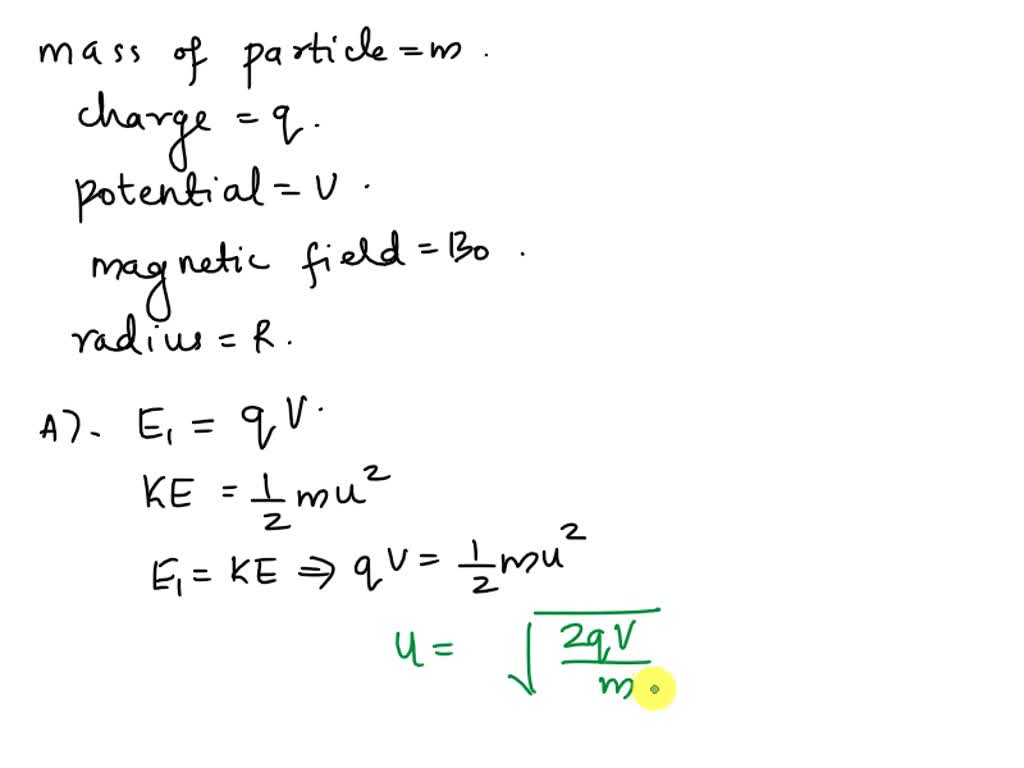 mass of particle = m.
charge = q.
potential = V.
magnetic field = B₀.
radius = R.
A). E₁ = qV.
KE = 1/2 mu²
E₁ = KE ⇒ qV = 1/2 mu²
u = √(2qV/m)